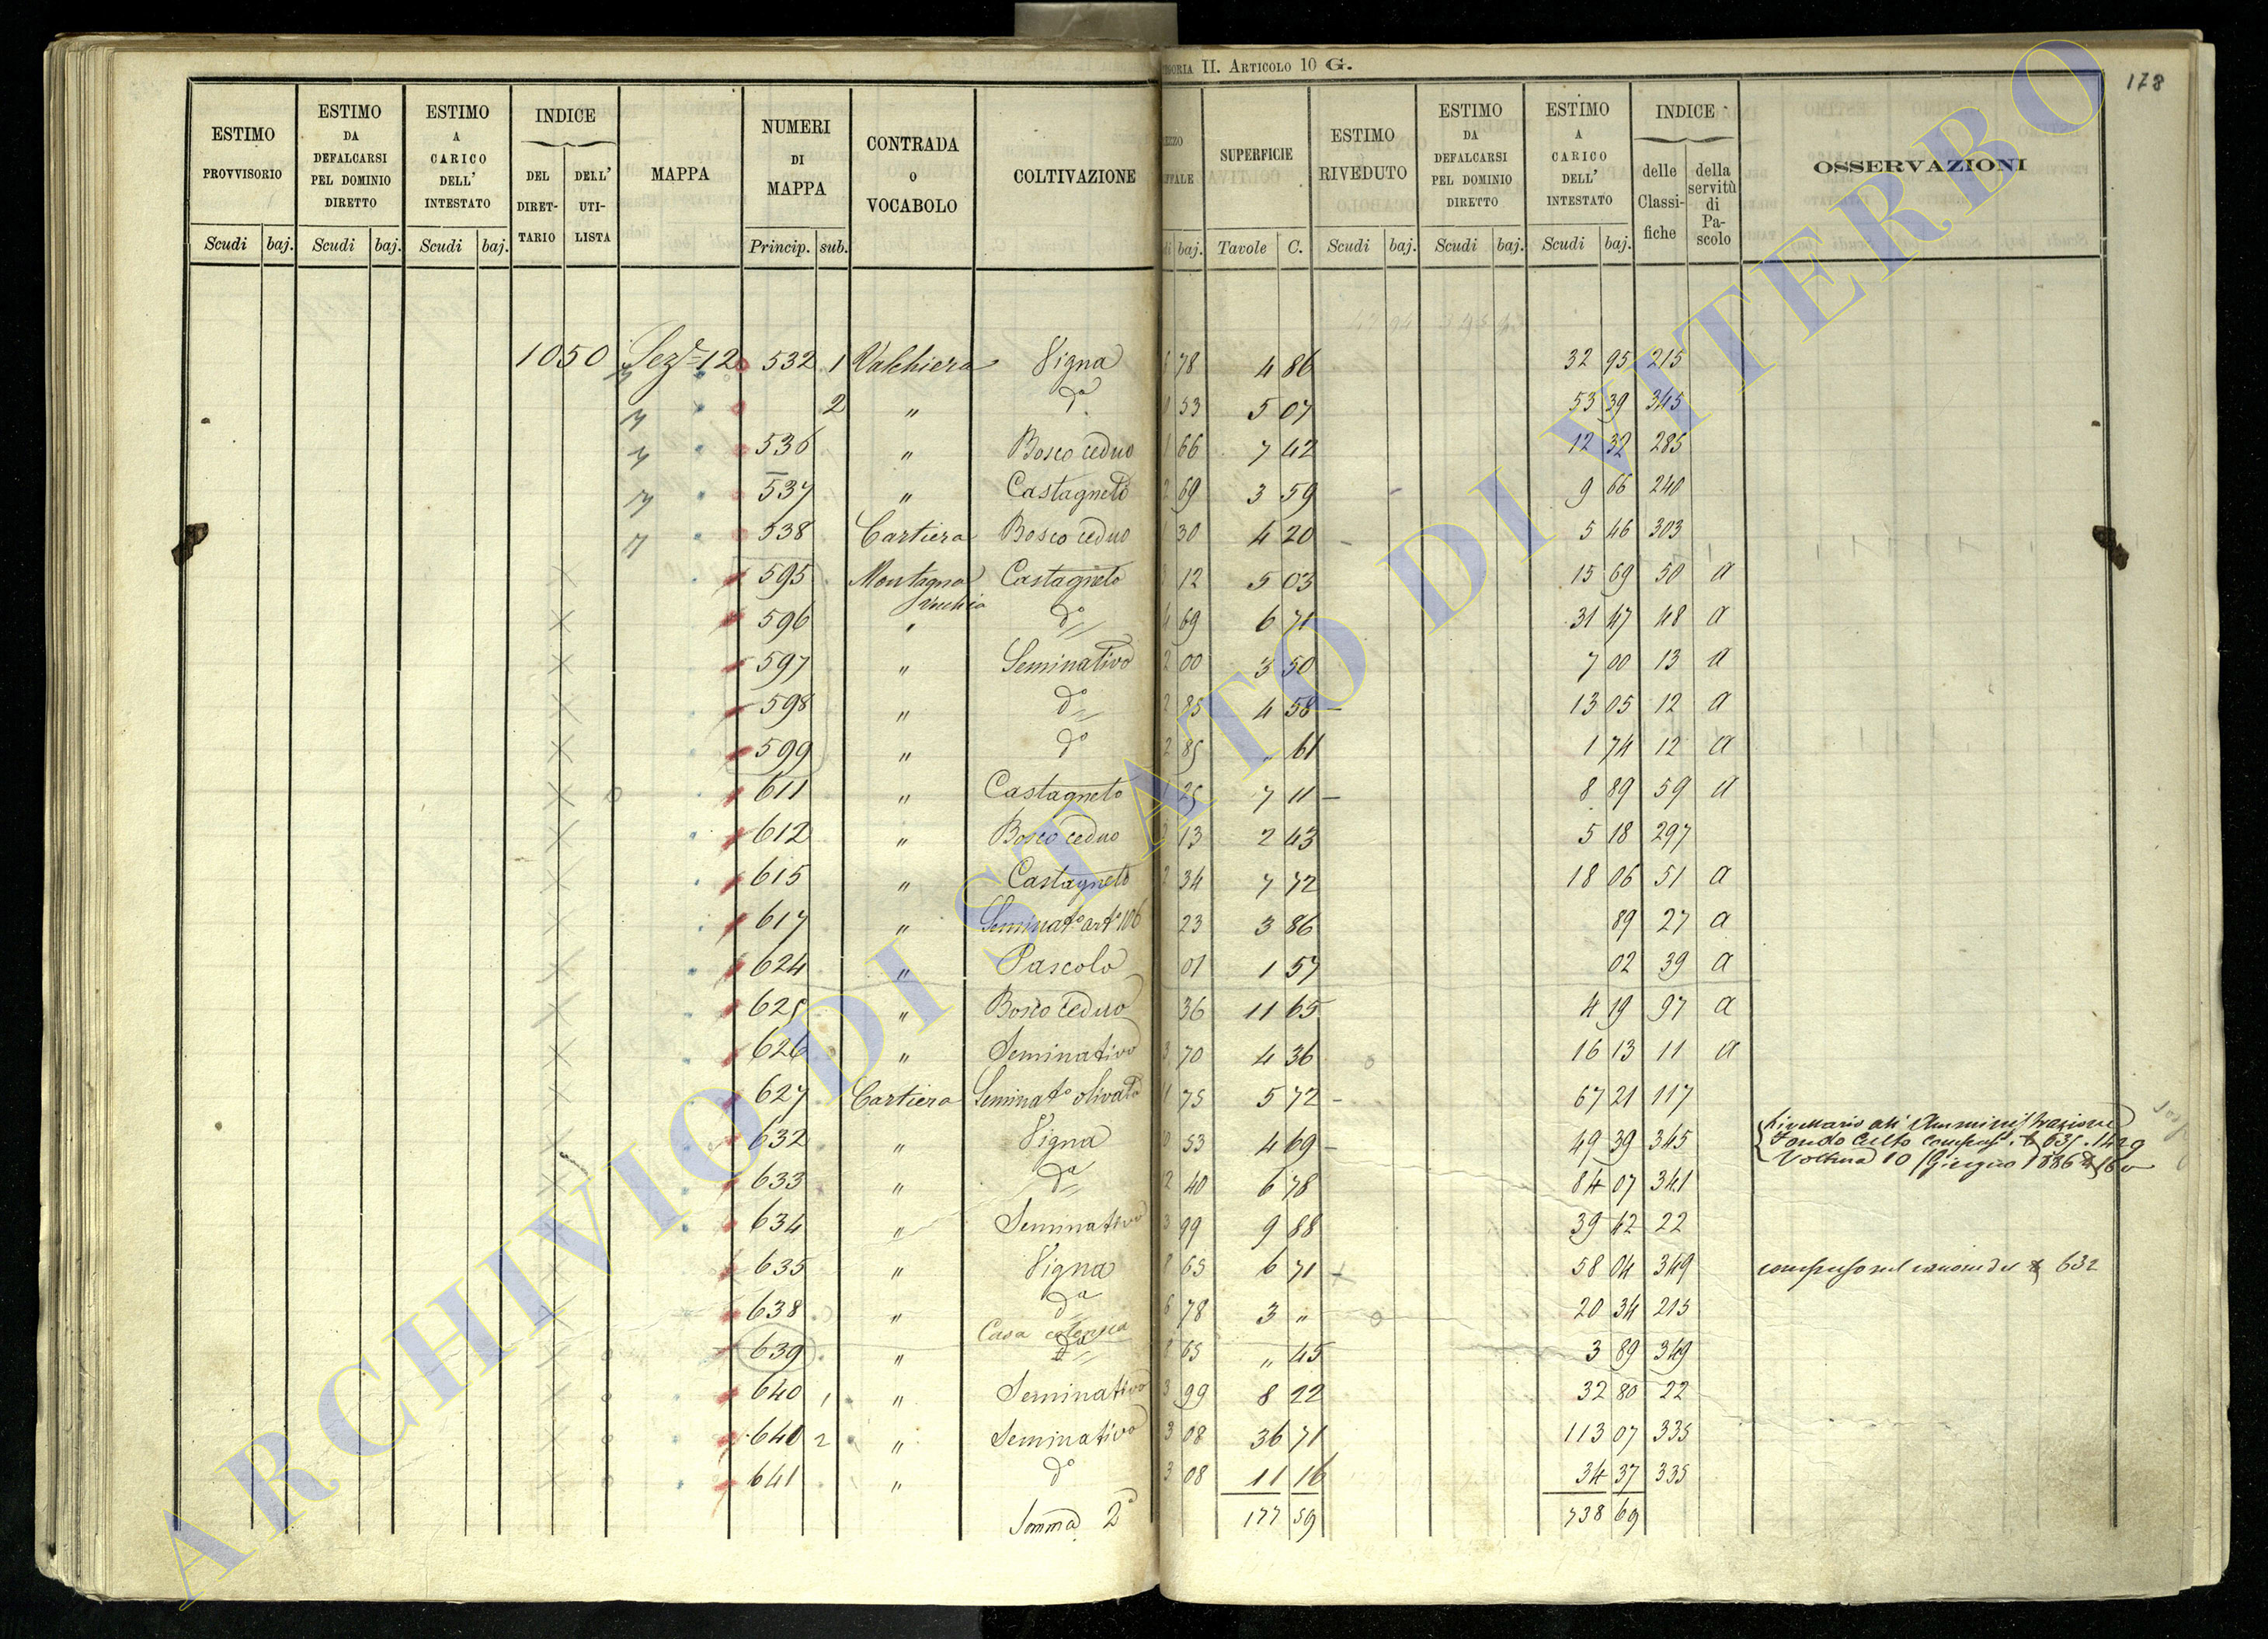 CATEGORIA II. ARTICOLO 10 G.
178
ESTIMO PROVVISORIO | ESTIMO DA DEFALCARSI PEL DOMINIO DIRETTO | ESTIMO A CARICO DELL' INTESTATO | INDICE | MAPPA | NUMERI DI MAPPA | CONTRADA O VOCABOLO | COLTIVAZIONE | SUPERFICIE | ESTIMO RIVEDUTO | ESTIMO DA DEFALCARSI PEL DOMINIO DIRETTO | ESTIMO A CARICO DELL' INTESTATO | INDICE | OSSERVAZIONI
DEL DIRETTARIO | DELL' UTILISTA | delle Classifiche | della servitù di Pascolo
Scudi baj. | Scudi baj. | Scudi baj. | Princip. sub. | baj. | Tavole C. | Scudi baj. | Scudi baj. | Scudi baj.
1050 Sez.e 12 532 1 Valchiera Vigna 6 78 4 86 32 95 215
2 " da 53 5 07 53 39 345
536 " Bosco ceduo 1 66 7 42 12 32 285
537 " Castagneto 2 69 3 59 9 66 240
538 Cartiera Bosco ceduo 1 30 4 20 5 46 303
595 Montagna Vecchia Castagneto 3 12 5 03 15 69 50 a
596 " do 4 69 6 71 31 47 48 a
597 " Seminativo 2 00 3 50 7 00 13 a
598 " do 2 85 4 58 13 05 12 a
599 " do 2 85 " 61 1 74 12 a
611 " Castagneto 1 25 7 11 8 89 59 a
612 " Bosco ceduo 2 13 2 43 5 18 297
615 " Castagneto 2 34 7 72 18 06 51 a
617 " Seminato arto 106 23 3 86 89 27 a
624 " Pascolo 01 1 57 02 39 a
625 " Bosco ceduo 36 11 65 4 19 97 a
626 " Seminativo 3 70 4 36 16 13 11 a
627 Cartiera Seminato olivato 11 75 5 72 67 21 117
632 " Vigna 10 53 4 69 49 39 345 Livellario all'Amministrazione Fondo Culto 1429
Voltura 10 Giugno 1886
633 " da 12 40 6 78 84 07 341
634 " Seminativo 3 99 9 88 39 42 22
635 " Vigna 8 65 6 71 58 04 349 compreso nel canone del N 632
638 " da 6 78 3 " 20 34 215
639 " Casa colonica da 8 65 " 45 3 89 349
640 1 " Seminativo 3 99 8 22 32 80 22
640 2 " Seminativo 3 08 36 71 113 07 335
641 " do 3 08 11 16 34 37 335
Somma 2a 177 59 738 69
ARCHIVIO DI STATO DI VITERBO